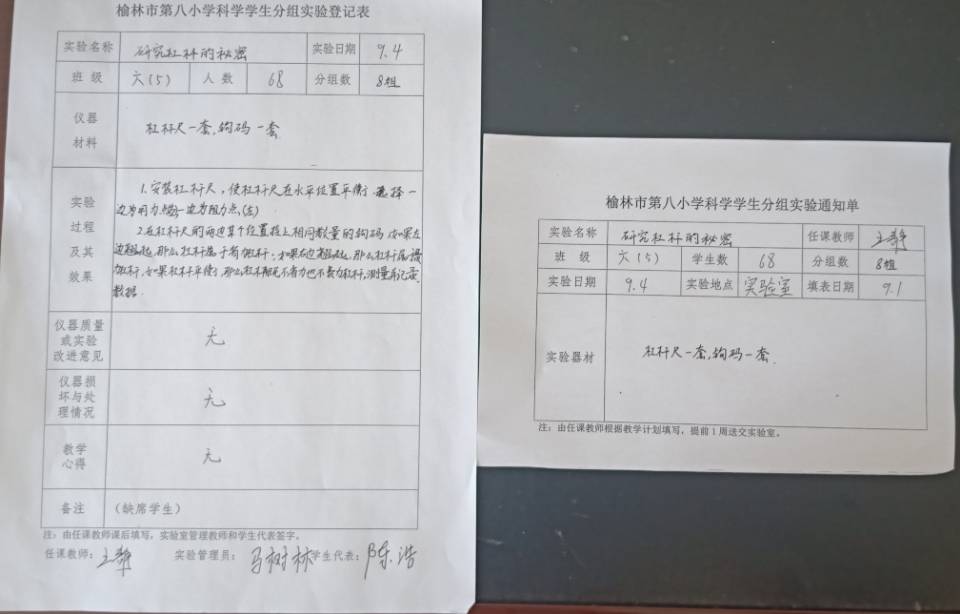 榆林市第八小学科学学生分组实验登记表
实验名称 研究杠杆的秘密 实验日期 9.4
班 级 六(5) 人 数 68 分组数 8组
仪器
材料
杠杆尺一套,钩码一套
实验
过程
及其
效果
1.安装杠杆尺,使杠杆尺在水平位置平衡 选择一
边为用力点,一边为阻力点,(左)
2.在杠杆尺的两边某个位置挂上相同数量的钩码,如果左
边翘起,那么杠杆属于省力杠杆,如果右边翘起,那么杠杆属费
力杠杆,如果杠杆平衡,那么杠杆既不省力也不费力杠杆,测量并记录
数据.
仪器质量
或实验
改进意见
无
仪器损
坏与处
理情况
无
教学
心得
无
备注 (缺席学生)
注:由任课教师课后填写,实验室管理教师和学生代表签字。
任课教师: 实验管理员: 马树林 学生代表: 陈浩
榆林市第八小学科学学生分组实验通知单
实验名称 研究杠杆的秘密 任课教师
班 级 六(5) 学生数 68 分组数 8组
实验日期 9.4 实验地点 实验室 填表日期 9.1
实验器材 杠杆尺一套,钩码一套.
注:由任课教师根据教学计划填写,提前1周送交实验室。